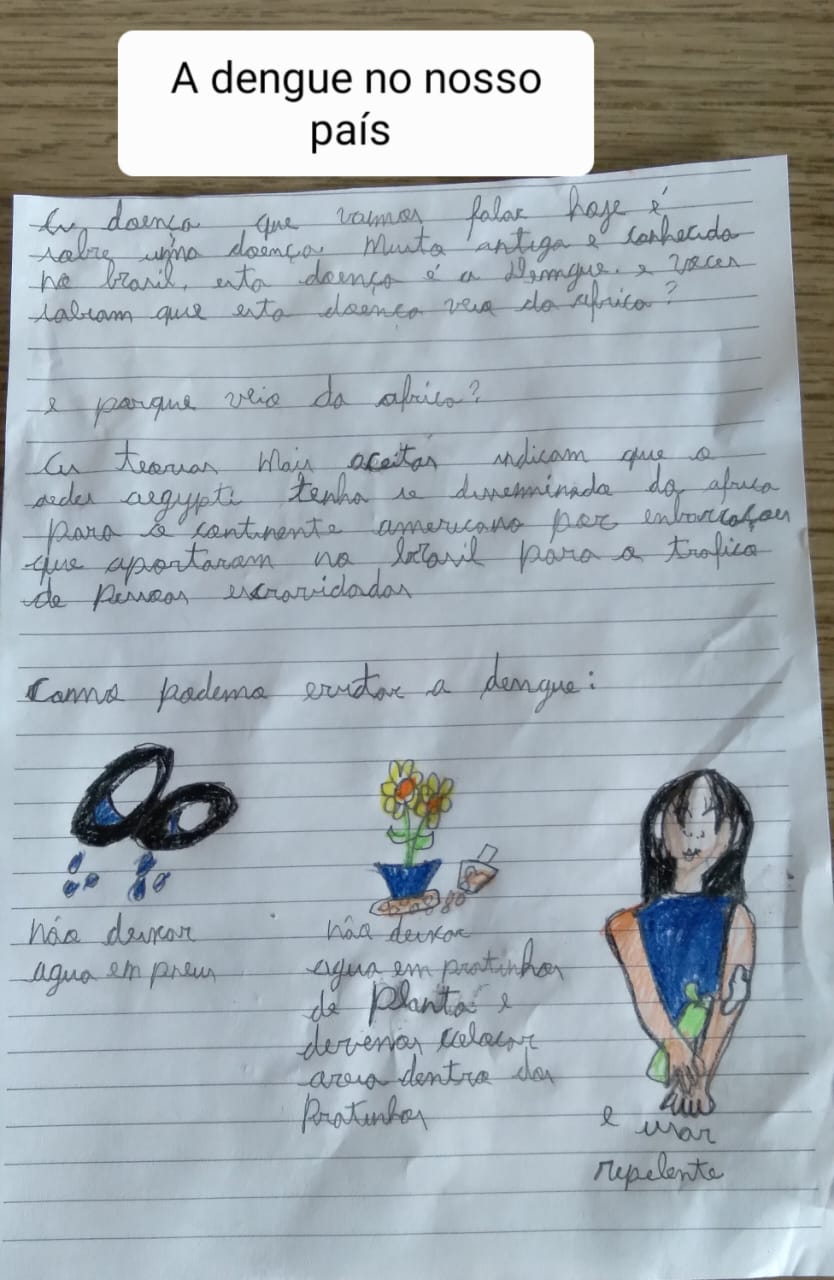 A dengue no nosso
país
A doença que vamos falar hoje é
sobre uma doença muito antiga e conhecida
no brasil, esta doença é a Demgue. e voces
sabiam que esta doença veio da africa?
e porque veio da africa?
As teorias mais aceitas indicam que o
aedes aegypti tenha se disseminado da africa
para o continente americano por enbarcaçoes
que aportaram no brasil para o trafico
de pessoas escravidadas
Como podemo evitar a dengue:
não deixar
agua em pneus
não deixar
agua em pratinhos
de planta e
devemos colocar
areia dentro dos
Pratinhos
e usar
repelente